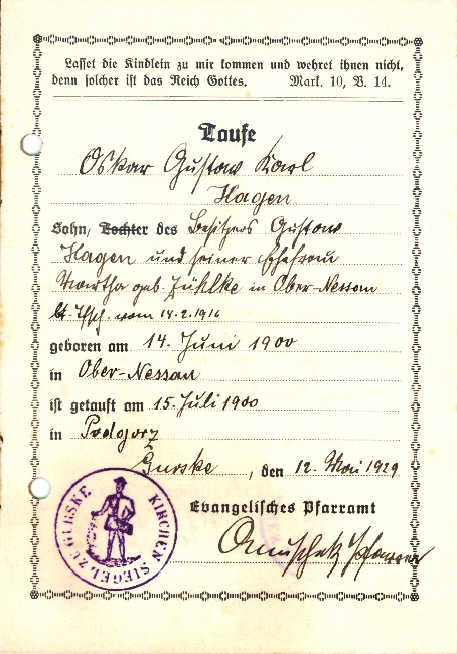 Lasset die Kindlein zu mir kommen und wehret ihnen nicht,
denn solcher ist das Reich Gottes. Mark. 10, V. 14.
Taufe
Oskar Gustav Karl
Hagen
Sohn, Tochter des Besitzers Gustav
Hagen und seiner Ehefrau
Martha geb. Zühlke in Ober-Nessau
vom 14.2.1916
geboren am 14. Juni 1900
in Ober-Nessau
ist getauft am 15. Juli 1900
in Podgorz
Gurske, den 12. Mai 1929
Evangelisches Pfarramt
Pfarrer
KIRCHEN SIEGEL ZU GURSKE